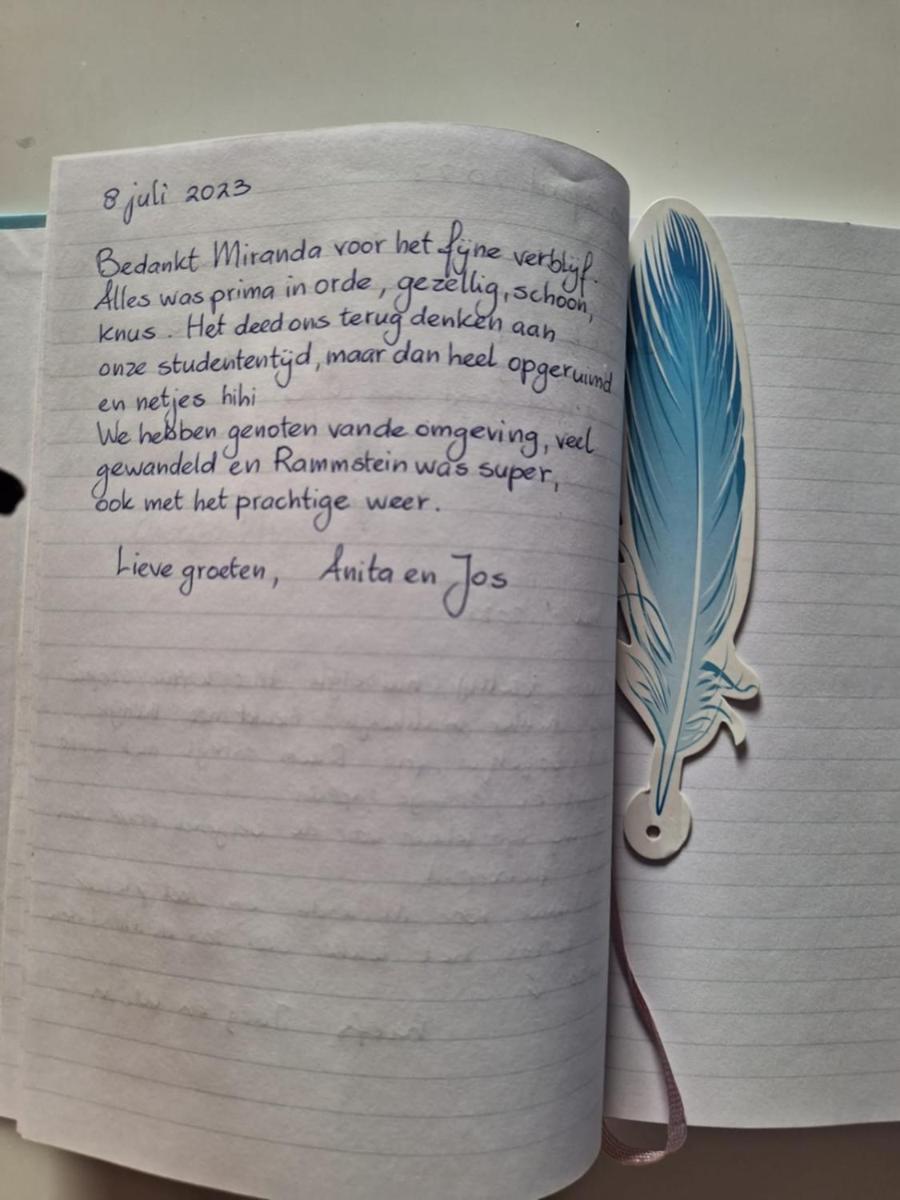 8 juli 2023
Bedankt Miranda voor het fijne verblijf.
Alles was prima in orde, gezellig, schoon,
knus. Het deed ons terug denken aan
onze studententijd, maar dan heel opgeruimd
en netjes hihi
We hebben genoten van de omgeving, veel
gewandeld en Rammstein was super,
ook met het prachtige weer.
Lieve groeten, Anita en Jos